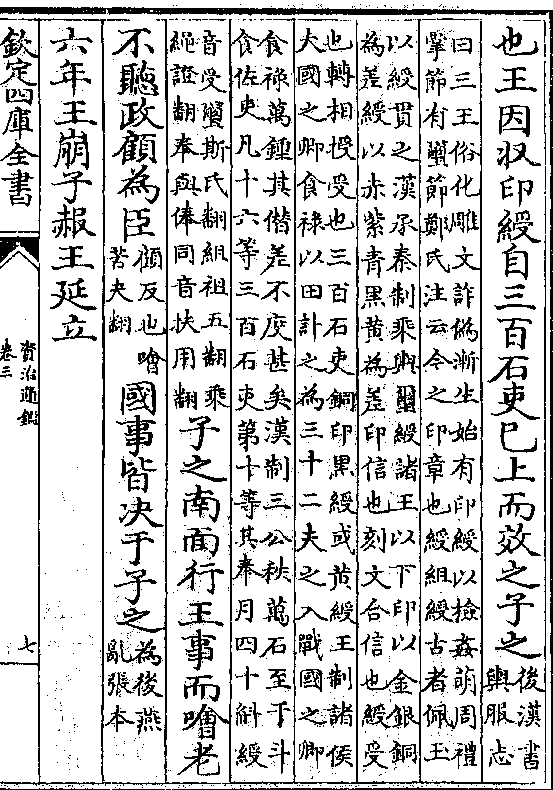 也王因収印綬自三百石吏巳上而效之子之
後漢書
輿服志
曰三王俗化雕文詐偽漸生始有印綬以檢姦萌周禮
掌節有璽節鄭氏注云今之印章也綬組綬古者佩玉
以綬貫之漢承秦制乘輿璽綬諸王以下印以金銀銅
為差綬以赤紫青黑黄為差印信也刻文合信也綬受
也轉相授受也三百石吏銅印黒綬或黄綬王制諸侯
大國之卿食禄以田計之為三十二夫之入戰國之卿
食祿萬鍾其僭差不度甚矣漢制三公秩萬石至于斗
食佐史凡十六等三百石吏第十等其奉月四十斛綬
音受璽斯氏翻組祖五翻乘
繩證翻奉與俸同音扶用翻
子之南面行王事而噲老
不聽政顧為臣
顧反也噲
苦夬翻
國事皆决于子之
為後燕
亂張本
六年王崩子赧王延立
欽定四庫全書
資治通鑑
卷三
七